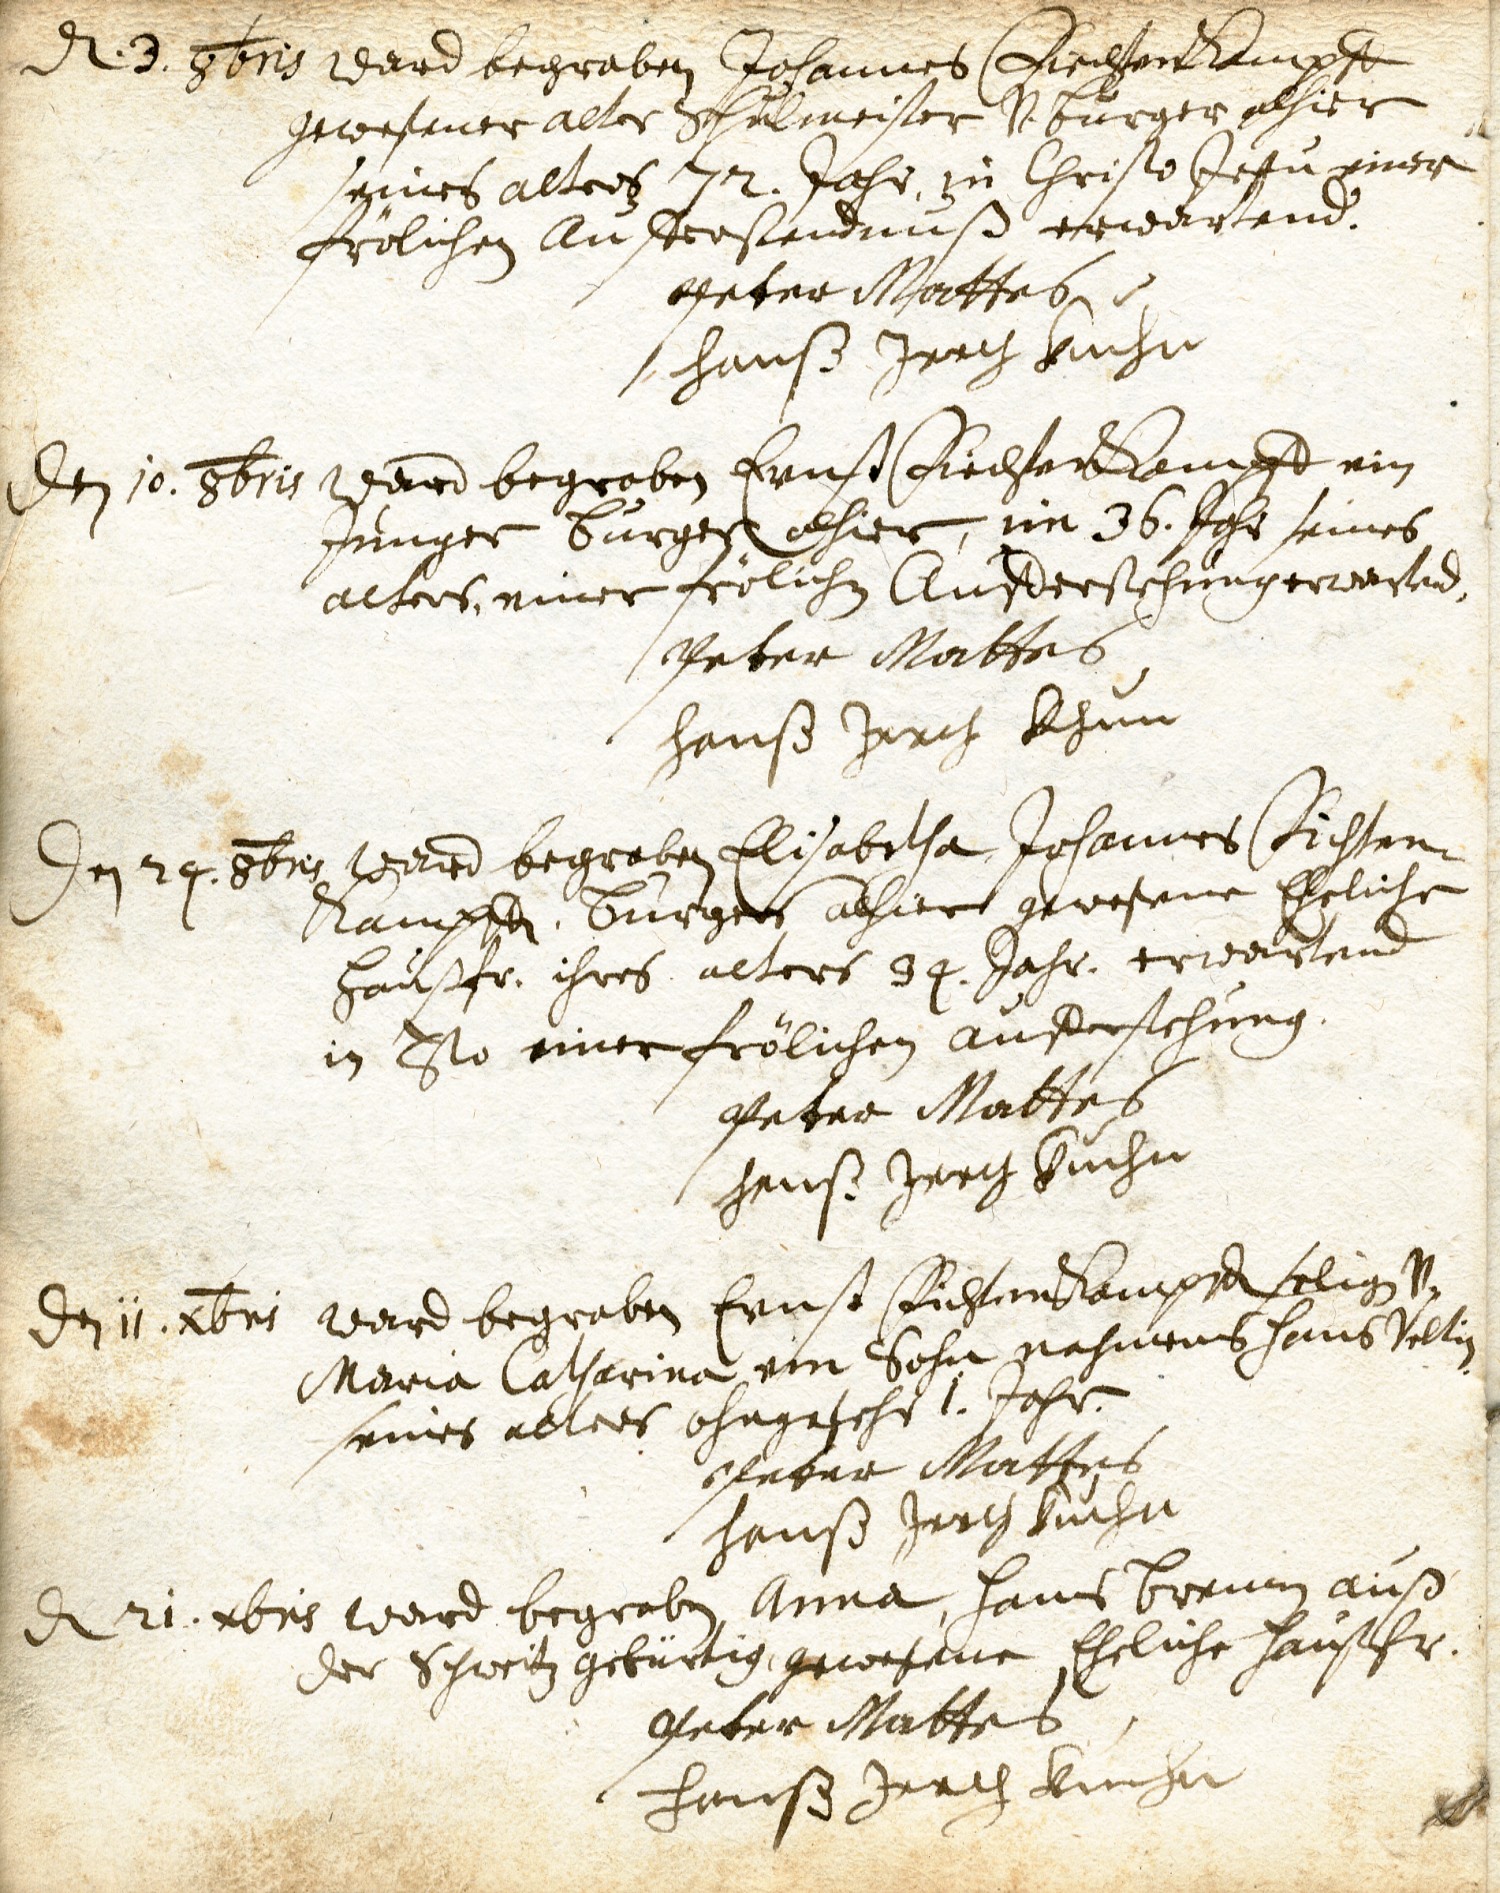 D. 3. 8bris ward begraben Johannes Fiechtenkampff
gewesener alter Schulmeister v. burger alhier
seines alters 72. Jahr, in Christo Jesu einer
frölichen Aufferstendnuß erwartend.
Peter Mattes
hanß Jerch Kuhn
Den 10. 8bris ward begraben Ernst Fiechtenkampff ein
junger burger alhier, im 36. Jahr seines
alters, einer frölichn Aufferstehung erwartend.
Peter Mattes
hanß Jerch Khun
Den 24. 8bris ward begraben Elisabetha Johannes Fichten-
kampffs, burgers alhier gewesene Eheliche
haußfr. ihres alters 34. Jahr. erwartend
in Xsto einer frölichen aufferstehung.
Peter Mattes
hanß Jerch Kuhn
Den 11. xbris ward begraben Ernst Fichtenkampffs selig v.
Maria Catharina ein Sohn nahmens Hans Veltin,
seines alters ohngefehr 1. Jahr.
Peter Mattes
hanß Jerch Kuhn
D 21. xbris ward begrabn Anna, Hans auß
der Schweitz gebürtig, gewesene Eheliche haußfr.
Peter Mattes
hanß Jerch Kuhn